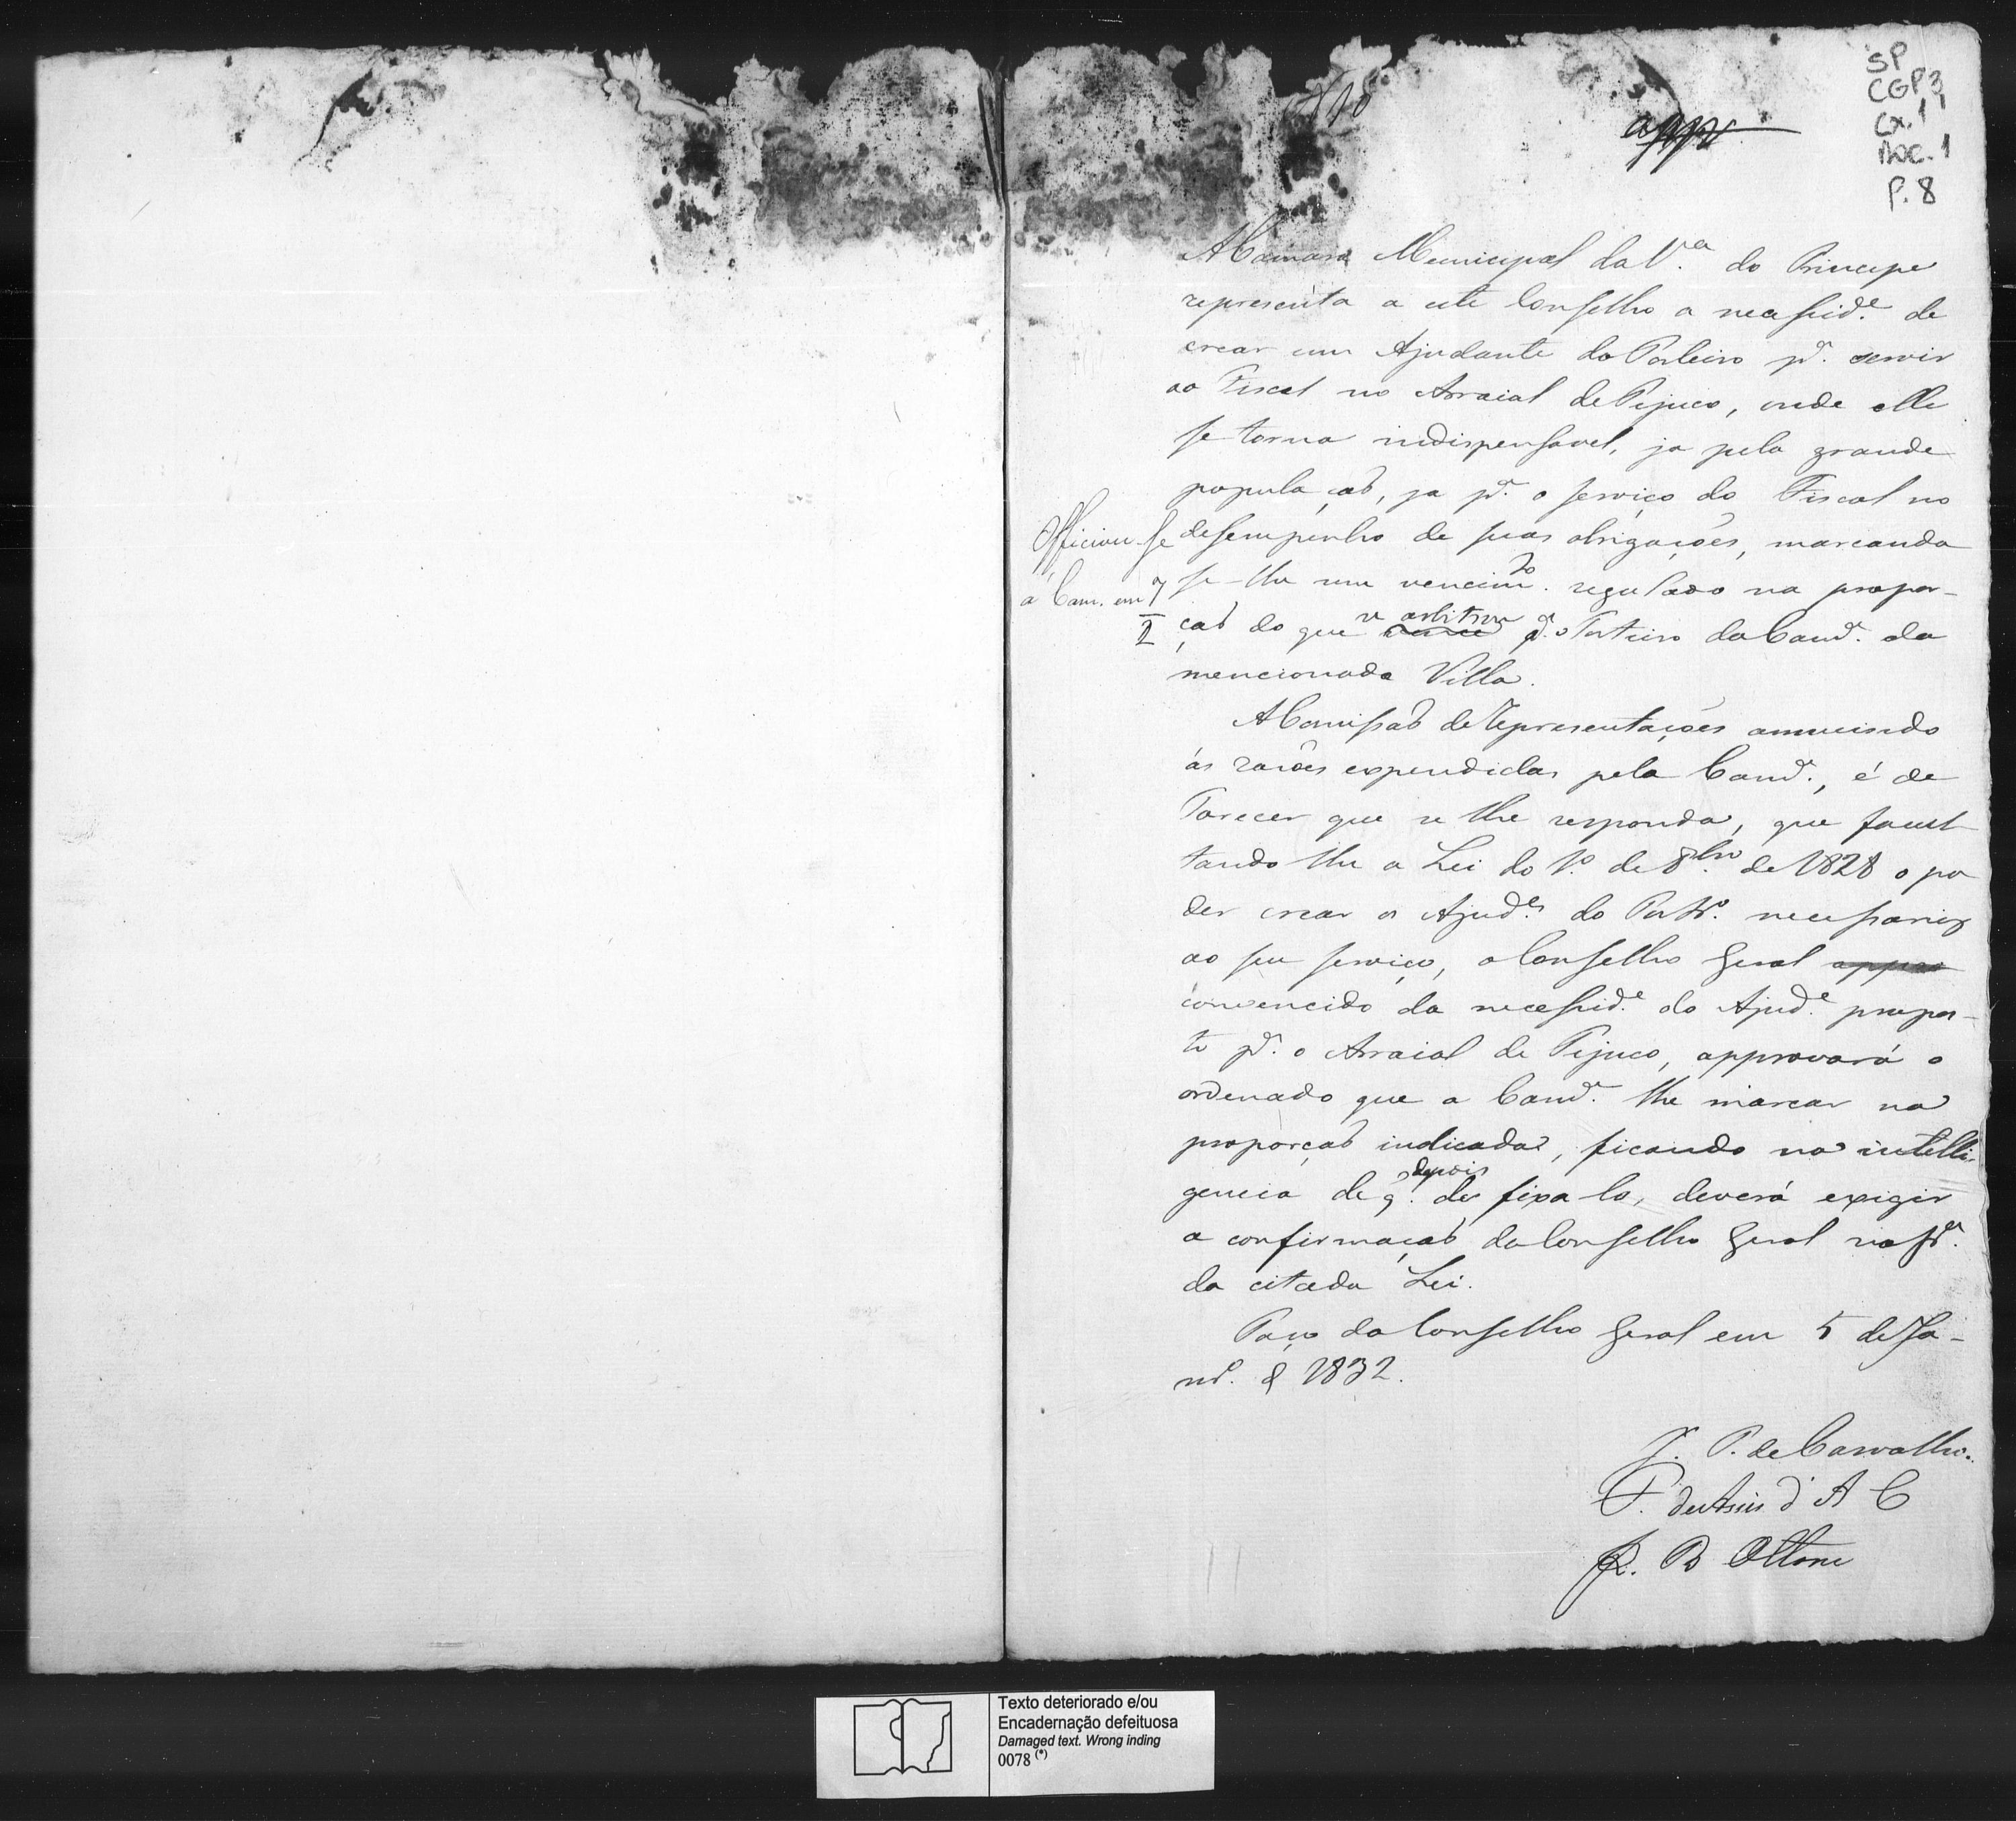 SP
CGP 3
Cx. 1
Doc. 1
P. 8
app.
A Camara Municipal da V.ª do Principe
representa a este Conselho a necessid.e de
crear um Ajudante do Porteiro p.ª servir
ao Fiscal no Arraial de Tejuco, onde elle
se torna indispensavel, ja pela grande
populaçaõ, ja p.ª o serviço do Fiscal no
desempenho de suas obrigações, marcando
se-lhe um vencim.to regulado na propor-
çaõ do que se arbitrou p.ª o Porteiro da Cam.ª da
mencionada Villa.
Officiou-se
a Cam. em 7
I
A Comissaõ de Representações annuindo
ás razões expendidas pela Cam.ª, é de
Parecer que se lhe responda, que facul-
tando lhe a Lei do 1.º de 8.bro de 1828 o po
der crear os Ajud.es do Portr.º necessarios
ao seu serviço, o Conselho Geral appro
convencido da necessid.e do Ajud.e propos-
to p.ª o Arraial de Tejuco, approvará o
ordenado que a Cam.ª lhe marcar na
proporçaõ indicada, ficando na intelli-
gencia de q. depois de fixa-lo, deverá exigir
a confirmaçaõ do Conselho Geral na fr.ª
da citada Lei.
Paço do Conselho Geral em 5 de Ja-
nr.º de 1832.
J. P. de Carvalho.
F. de Assis d' A C
R. B Ottoni
Texto deteriorado e/ou
Encadernação defeituosa
Damaged text. Wrong inding
0078 (*)